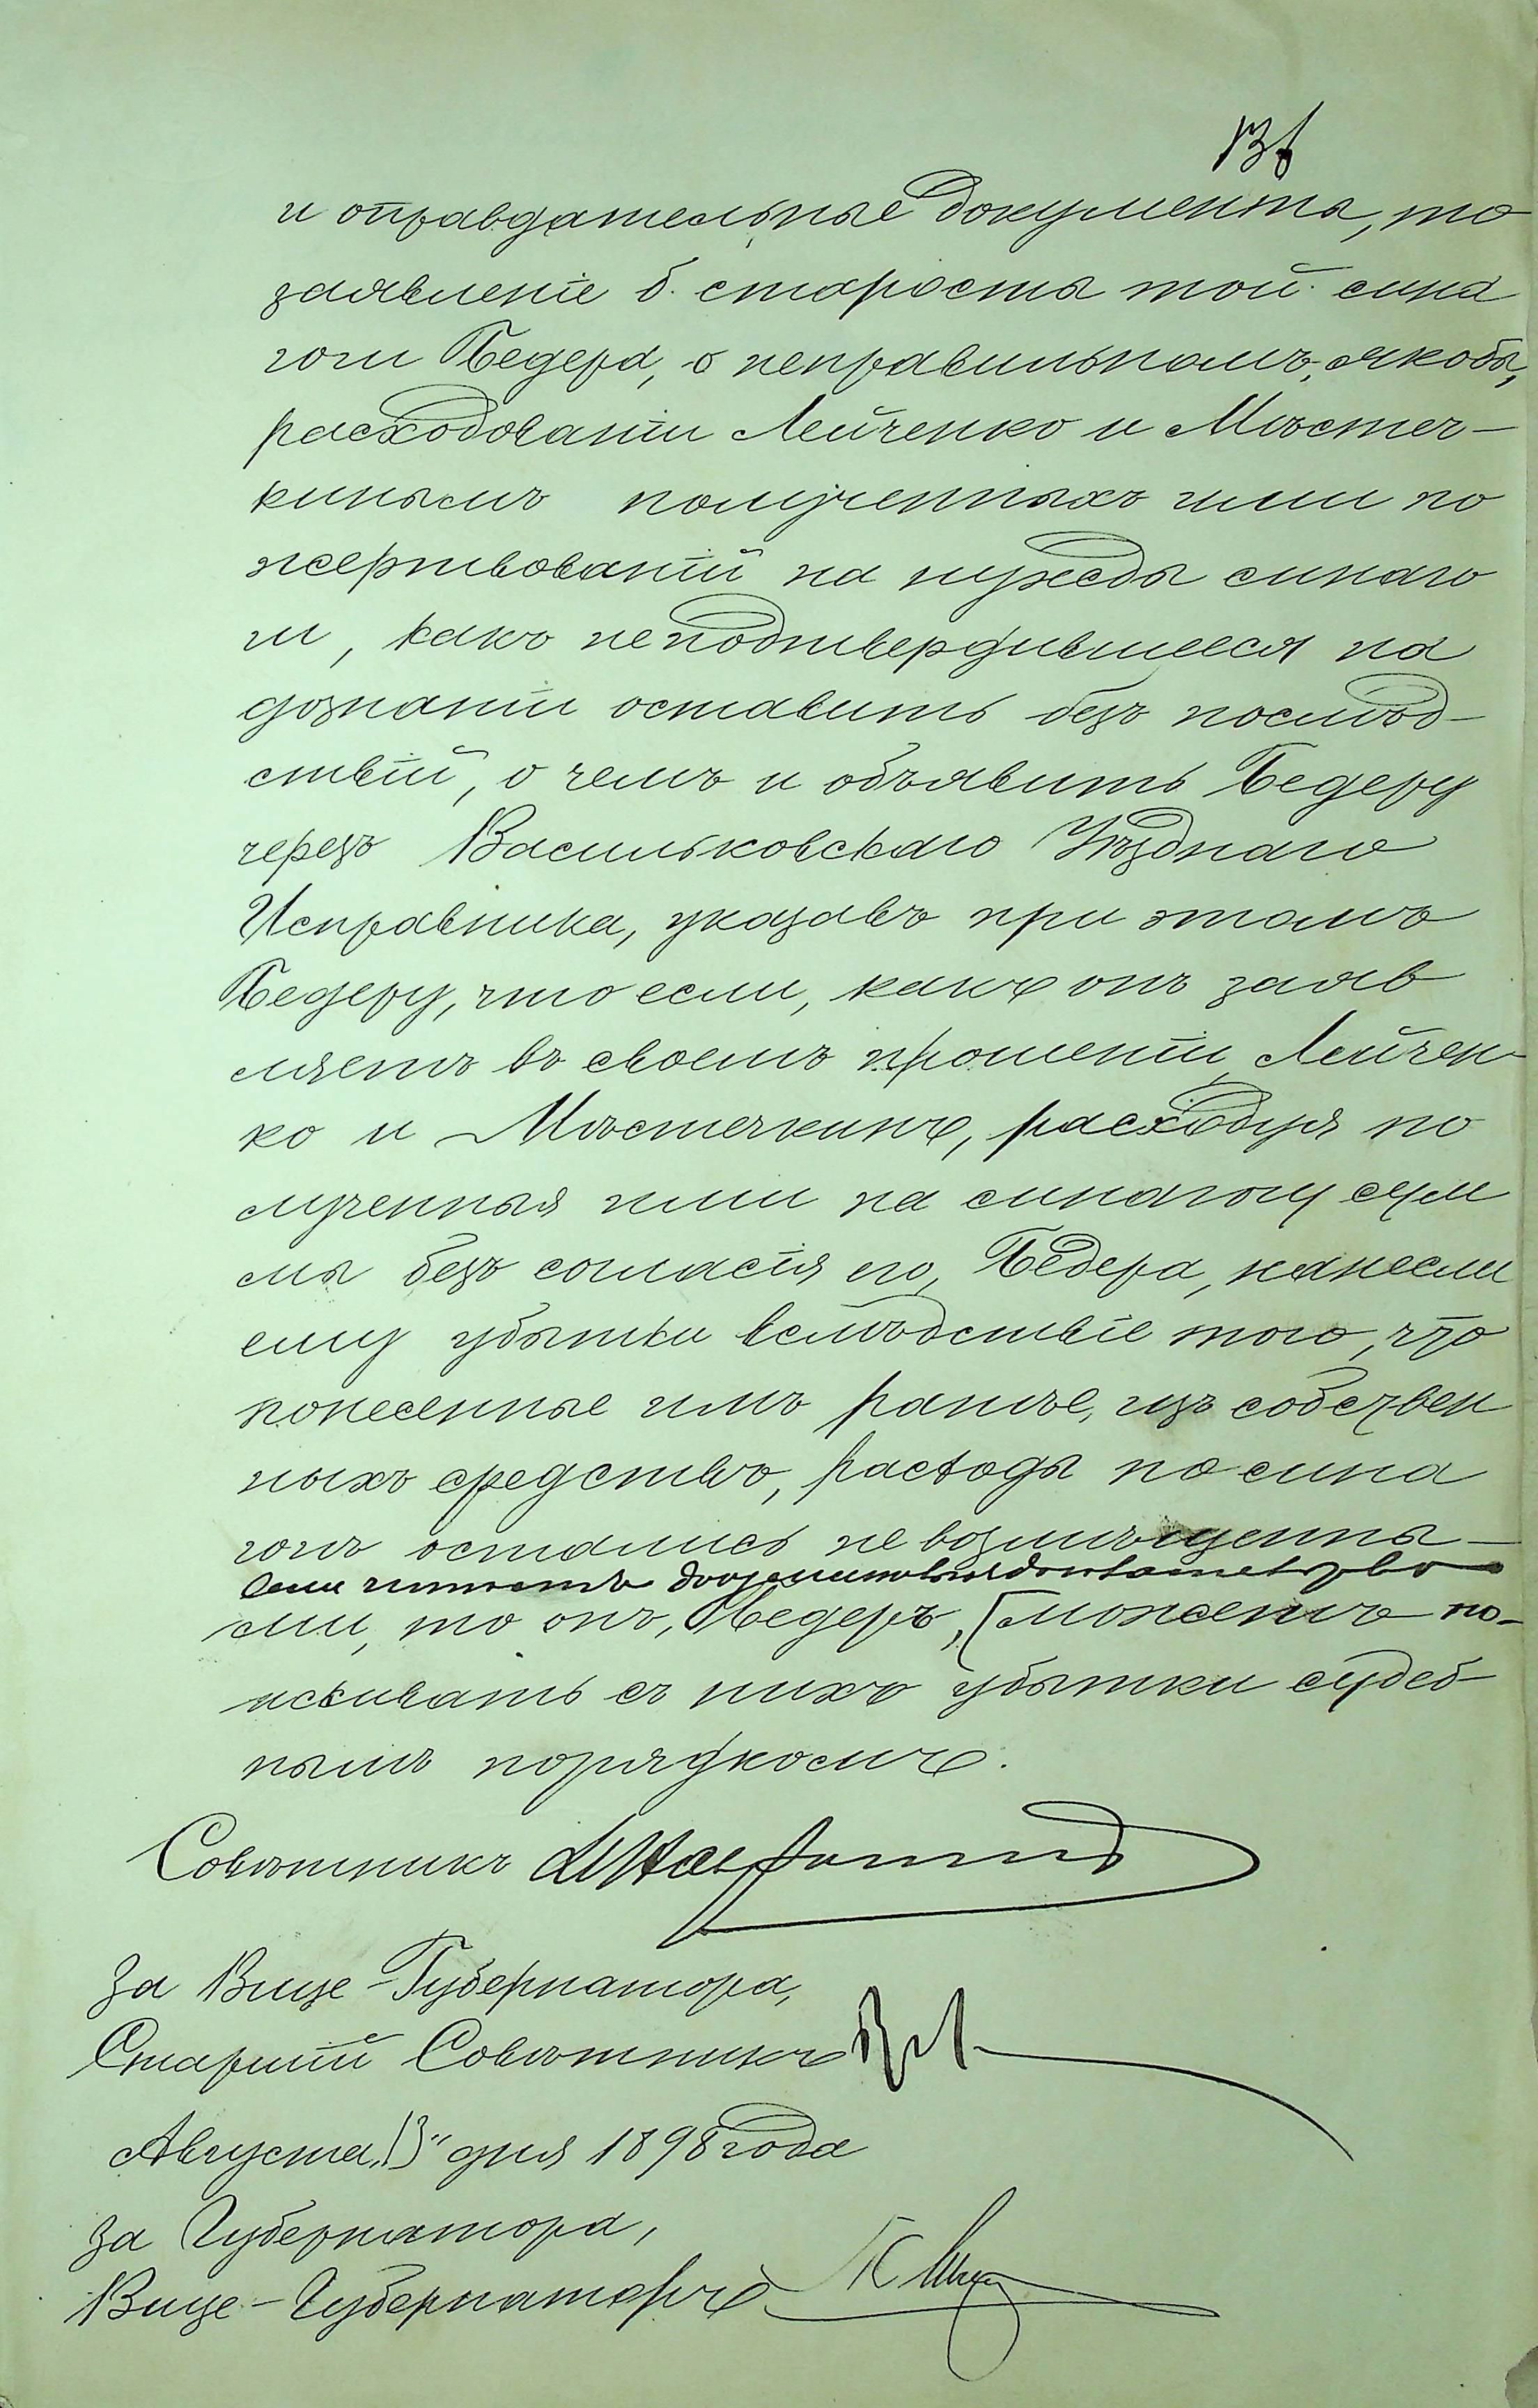 136
и оправдательные документы, то
заявленіе б. старосты той сина
гоги Бедера, о неправильномъ, якобы,
расходованіи Лейченко и Мѣстеч-
кинымъ полученныхъ ими по
жертвованій на нужды синаго
ги, какъ неподтвердившееся на
дознаніи оставить безъ послѣд-
ствій, о чемъ и объявить Бедеру
черезъ Васильковскаго Уѣзднаго
Исправника, указавъ при этомъ
Бедеру, что если, какъ онъ заяв
ляетъ въ своемъ прошеніи, Лейчен-
ко и Мѣстечкинъ, расходуя по
лученныя ими на синагогу сум
мы безъ согласія его, Бедера, нанесли
ему убытки вслѣдствіе того, что
понесенные имъ ранѣе, изъ собствен
ныхъ средствъ, расходы по сина
гогѣ остались не возмѣщенны-
если имѣетъ доказательство
ми, то онъ, Бедеръ, [можетъ по-
искивать съ нихъ убытки судеб-
нымъ порядкомъ.
Совѣтникъ
За Вице-Губернатора,
Старшій Совѣтникъ
Августа „13" дня 1898 года
За Губернатора,
Вице-Губернаторъ